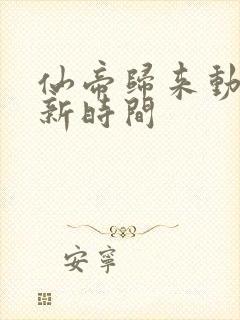 仙帝歸來動
新時間
安寧